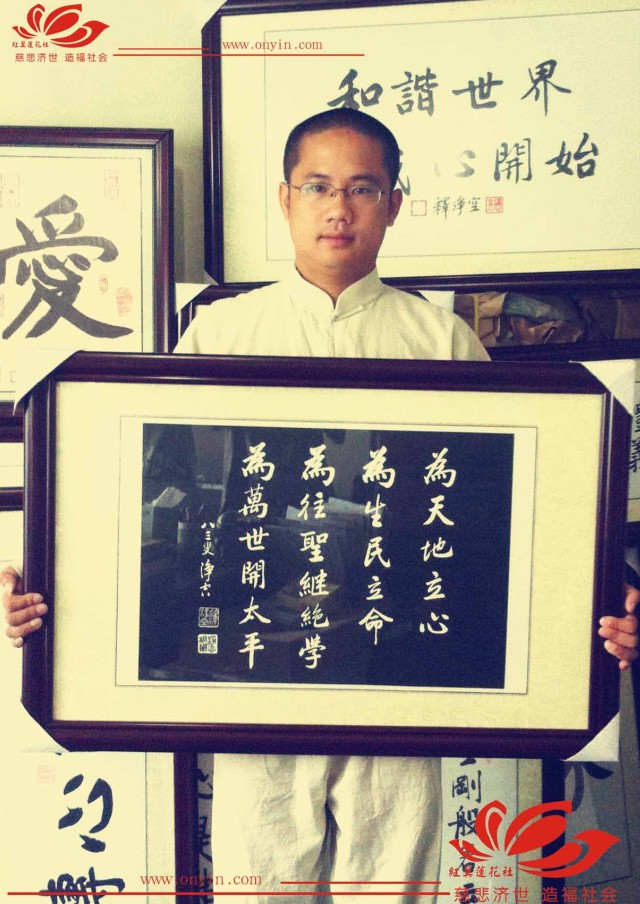 莲花社
慈悲济世 造福社会
www.onyin.com
和諧世界
心開始
釋淨空
愛
為天地立心
為生民立命
為往聖繼絶學
為萬世開太平
八三叟 淨空
剛般若
莲花社
慈悲济世 造福社会
www.onyin.com